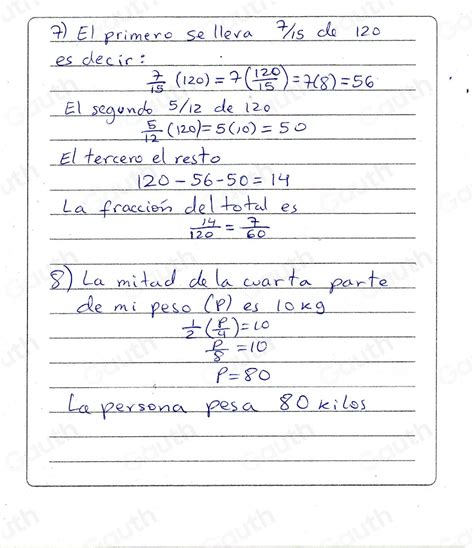 7) El primero se lleva 7/15 de 120
es decir:
7/15 (120) = 7(120/15) = 7(8) = 56
El segundo 5/12 de 120
5/12 (120) = 5(10) = 50
El tercero el resto
120 - 56 - 50 = 14
La fracción del total es
14/120 = 7/60
8) La mitad de la cuarta parte
de mi peso (P) es 10 kg
1/2 (P/4) = 10
P/8 = 10
P = 80
La persona pesa 80 kilos